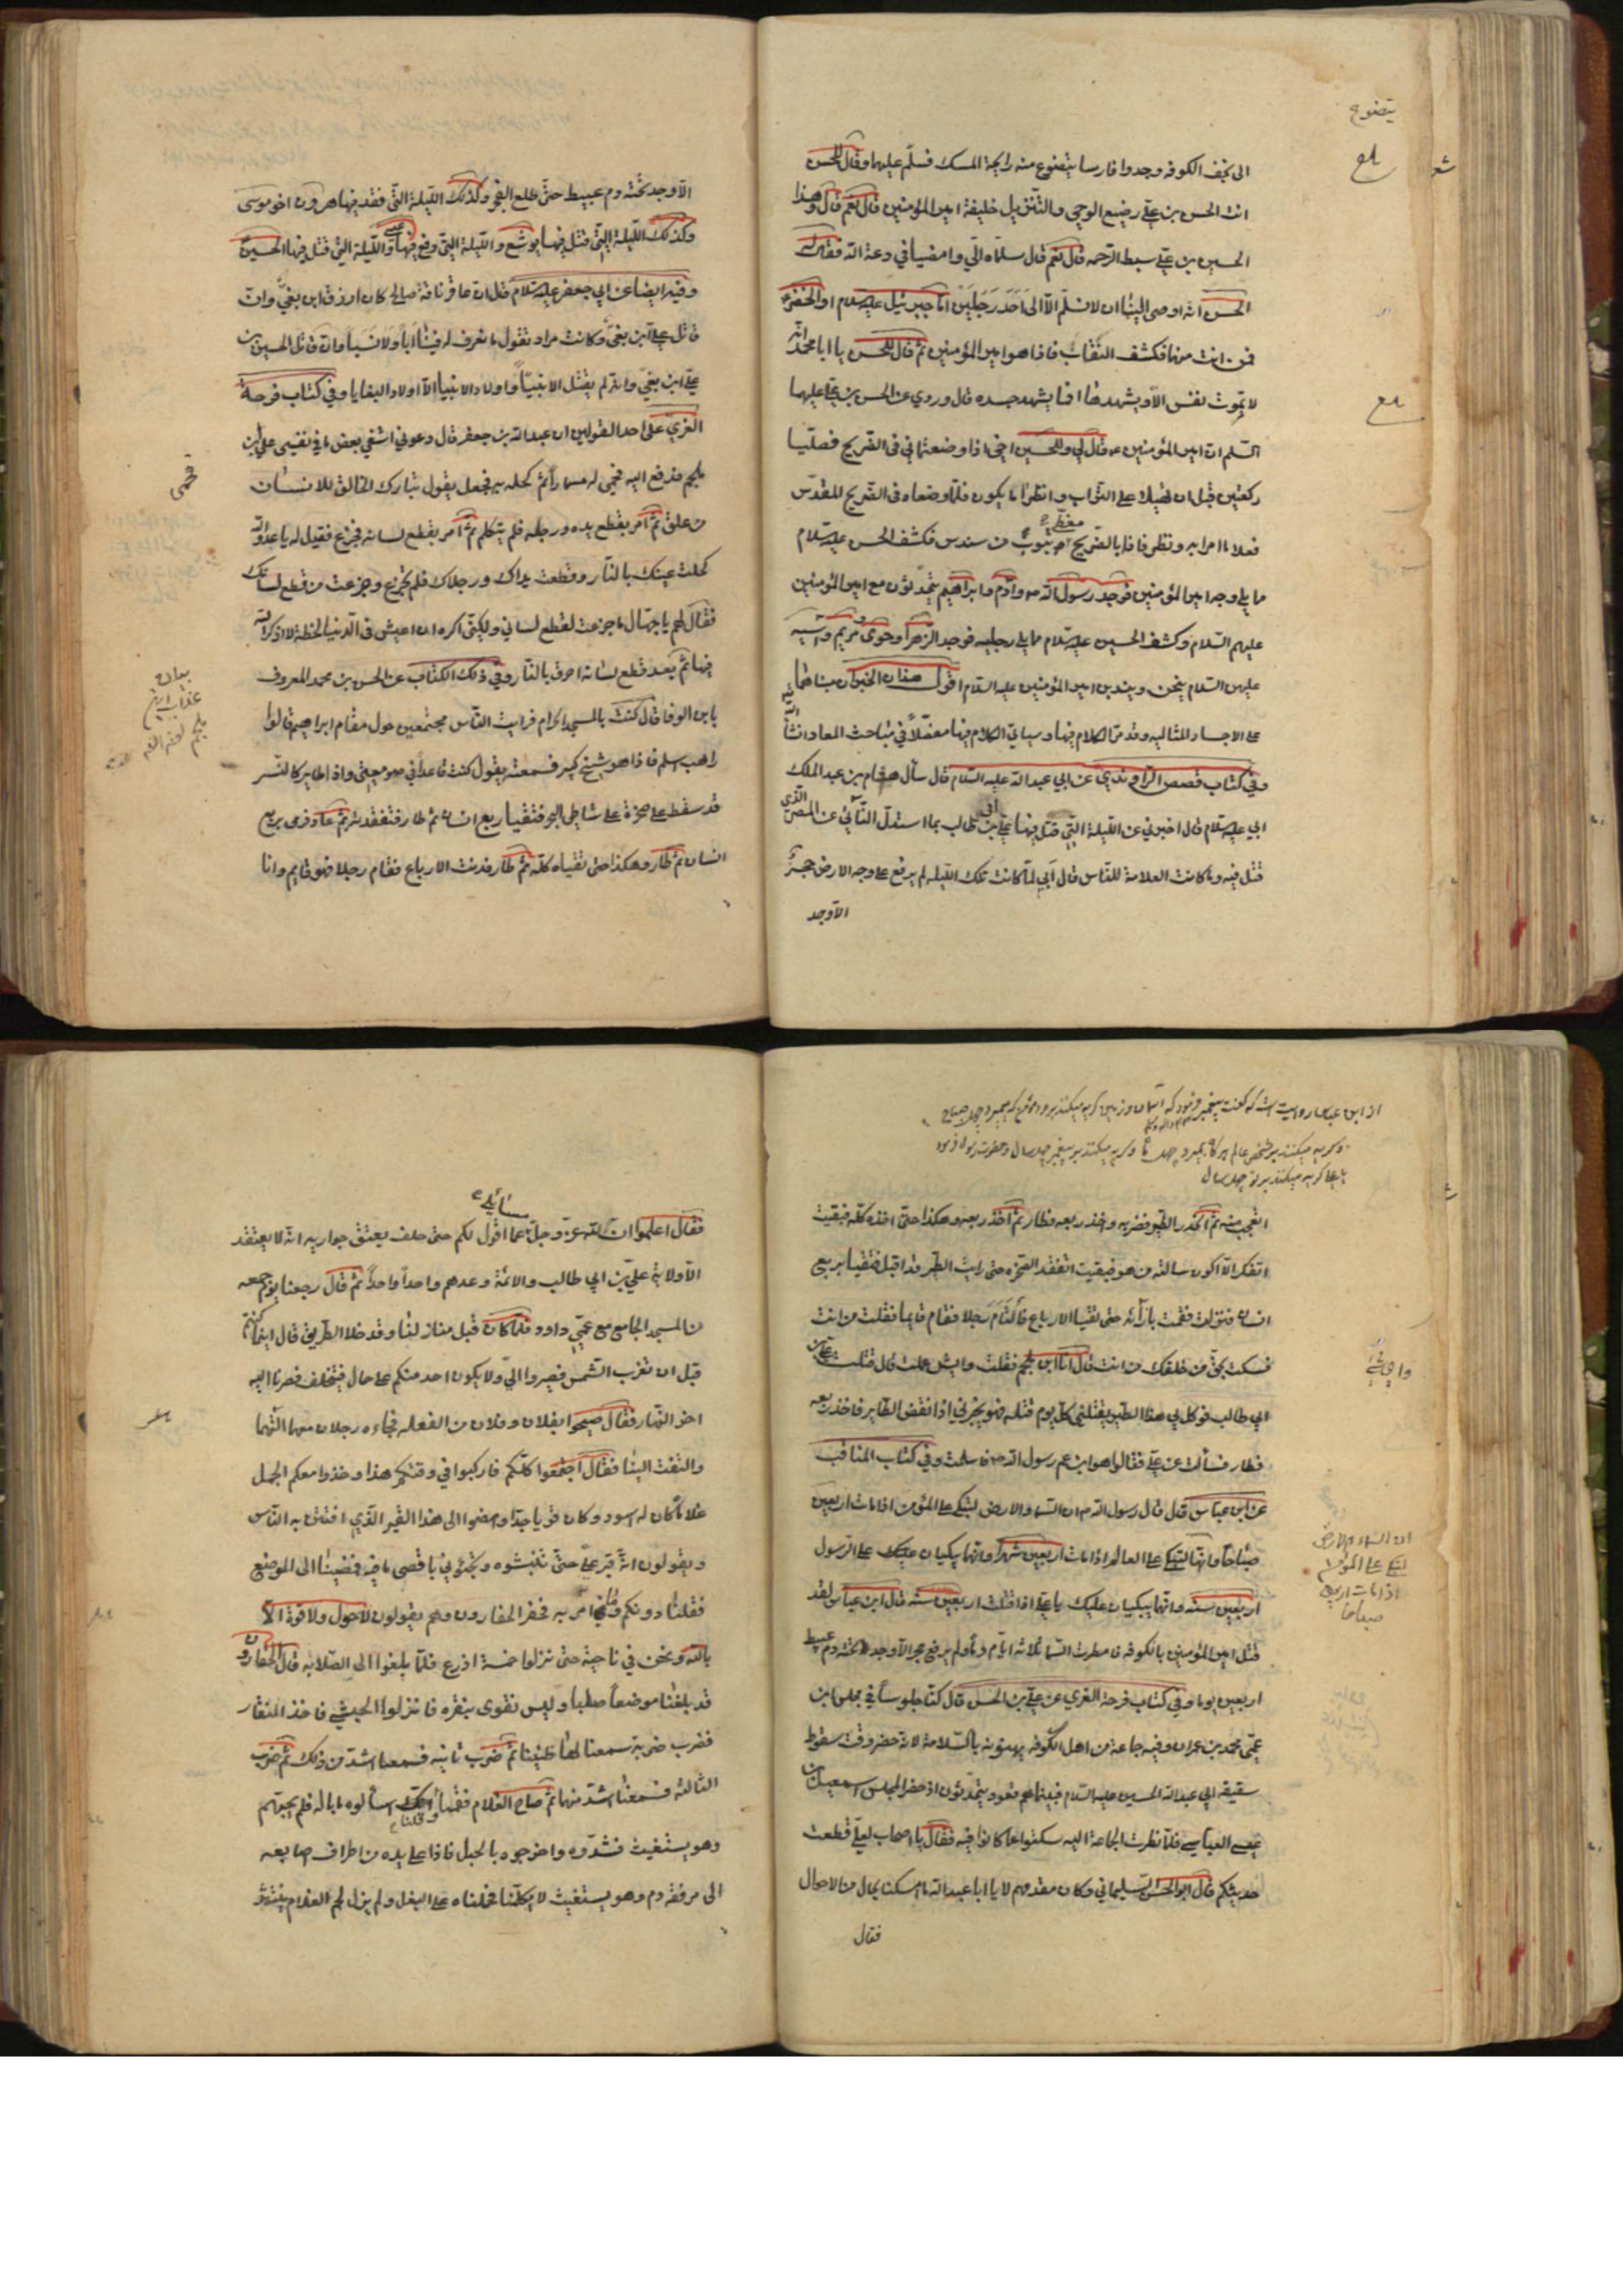 يتضوع
الى نجف الكوفة وجدوا فارسا يتضوع منه رايحة المسك فسلّم عليهما وقال للحسن
انت الحسن بن علي رضيع الوحي والتنزيل خليفة امير المؤمنين قال نعم قال وهذا
الحسين بن علي سبط الرحمه قال نعم قال سلّماه الّي وامضيا في دعة الله فقال له
الحسن انه اوصى الينا ان لا نسلّم الّا الى احد رجلين اما جبرئيل عليه السلام او الخضر
فمن انت منهما فكشف النقاب فاذا هو امير المؤمنين ثم قال للحسن يا ابا محمد انّه
لا تموت نفس الّا ويشهدها افما يشهد جسده قال وروي عن الحسن بن علي عليهما
السّلم انّ امير المؤمنين ع قال لي وللحسين اخي اذا وضعتماني فى الضّريح فصلّيا
ركعتين قبل ان تهيلا علىّ التّراب وانظرا ما يكون فلمّا وضعاه فى الضّريح المقدّس
فعلا ما امرا به ونظرا فاذا بالضّريح مغطّى بثوب من سندس فكشف الحسن عليه السلام
ما يلي وجه امير المؤمنين فوجد رسول الله ص وآدم وابراهيم يتحدّثون مع امير المؤمنين
عليهم السّلام وكشف الحسين عليه السلام مما يلي رجليه فوجد الزّهراء وحوّى ومريم وآسيه
عليهن السّلام ينحن ويندبن امير المؤمنين عليه السّلام اقول هذان الخبران مبناهما
على الاجساد المثاليه وقد مرّ الكلام فيها وسيأتي الكلام فيها مفصّلاً في مباحث المعاد انشاء الله
وفي كتاب قصص الرّاوندي عن ابي عبد الله عليه السّلام قال سأل هشام بن عبد الملك
ابي عليه السلام قال اخبرني عن اللّيلة التي قتل فيها علي بن ابي طالب بما استدلّ النّائي عن المصر الذي
قتل فيه وما كانت العلامة للنّاس قال ابي لمّا كانت تلك اللّيله لم يرفع على وجه الارض حجر
الّا وجد
الّا وجد تحته دم عبيط حتّى طلع الفجر وكذلك اللّيلة التّي فقد فيها هرون اخو موسى
وكذلك اللّيلة التّي قتل فيها يوشع واللّيلة التي رفع فيها عيسى واللّيلة التي قتل فيها الحسين
وفيه ايضا عن ابي جعفر عليه السلام قال انّ عاقر ناقة صالح كان ازرق ابن بغيّ وانّ
قاتل علي ابن بغيّ وكانت مراد تقول ما نعرف له فينا اباً ولا نسباً وانّ قاتل الحسين بن
علي ابن بغيّ وانّه لم يقتل الانبياء واولاد الانبيا الّا اولاد البغايا وفي كتاب فرحة
الغري على احد القولين ان عبد الله بن جعفر قال دعوني اشفي بعض ما في نفسي على ابن
ملجم فدفع اليه فحمي له مسماراً ثم كحله به فجعل يقول تبارك الخالق للانسان
من علق ثمّ امر بقطع يده ورجله فلم يتكلم ثمّ امر بقطع لسانه فجزع فقيل له يا عدوّ الله
كحلت عينك بالنّار وقطعت يداك ورجلاك فلم تجزع وجزعت من قطع لسانك
فقال لهم يا جهّال ما جزعت لقطع لساني ولكنّي اكره ان اعيش في الدّنيا لحظة لا اذكر الله
فيها ثمّ بعد قطع لسانه احرق بالنّار وفي ذلك الكتاب عن الحسن بن محمد المعروف
بابن الوفا قال كنت بالمسجد الحرام فرايت النّاس مجتمعين حول مقام ابراهيم قالوا
راهب اسلم فاذا هو شيخ كبير فسمعته يقول كنت قاعداً في صومعتي واذا طاير كالنسر
قد سقط على صخرة على شاطى البحر فتقيأ ربع انسان ثم طار فتفقدته ثم عاد فرمى بربع
انسان ثم طار وهكذا حتى تقياه كله ثم طار فدنت الارباع فقام رجلا فهو قايم وانا
فحمي
بيان
عذاب ابن
ملجم لعنه الله
از ابن عباس روايت است كه گفت پيغمبر فرمود كه آسمان وزمين گريه ميكنند بر مؤمن كه بميرد چهل صباح
وگريه ميكنند بر شخص عالم هرگاه بميرد چهل ماه وگريه ميكنند بر پيغمبر چهل سال
يا علي گريه ميكنند بر تو چهل سال
اتعجب منه ثم انحدر الطير فضربه واخذ ربعه وطار ثم اخذ ربعه وهكذا حتى اخذه كله فبقيت
اتفكر الّا اكون سالته من هو فبقيت اتفقد الصخره حتى رايت الطير قد اقبل فتقيأ بربع
انسان فنزلت فقمت بازائه حتى تقيأ الارباع فالتأم رجلا فقام قايما فقلت من انت
فسكت بحق من خلقك من انت قال انا ابن ملجم فقلت وايش عملت قال قتلت علي بن
ابي طالب فوكل بي هذا الطير يقتلني كل يوم قتله فهو يخبرني اذا انقض الطاير فاخذ ربعه
فطار فسألت عن علي فقالوا هو ابن عم رسول الله ص فاسلمت وفي كتاب المناقب
عن ابن عباس قال قال رسول الله ص ان السماء والارض لتبكي على المؤمن اذا مات اربعين
صباحا وانها لتبكي على العالم اذا مات اربعين شهرا وانها يبكيان عليك على الرسول
اربعين سنه وانها يبكيان عليك يا علي اذا قتلت اربعين سنه قال ابن عباس لقد
قتل امير المؤمنين بالكوفه فامطرت السّما ثلاثه ايّام دماً ولم يرفع حجر الّا وجد تحته دم عبيط
اربعين يوما وفي كتاب فرحة الغري عن علي بن الحسن قال كنّا جلوساً في مجلس ابن
عمّي محمد بن عمران وفيه جماعة من اهل الكوفه يهنونه بالسّلامة لانّه حضر وقت سقوط
سقيفه ابي عبد الله الحسين عليه السّلام فبينا هم قعود يتحدّثون اذ حضر المجلس اسمعيل بن
عيسى العباسي فلمّا نظرت الجماعة اليه سكتوا عما كانوا فيه فقال يا اصحاب لعلّي قطعت
حديثكم قال ابو الحسن السّليماني وكان مقدمهم لا يا ابا عبد الله ما امسكنا بحال من الاحوال
فقال
ان السماء والارض
لتبكي على المؤمن
اذا مات اربعين
صباحا
فقال اعلموا انّ الله عزّ وجلّ مسائلي عما اقول لكم حتى حلف بعتق جواريه انّه لا يعتقد
الّا ولاية علي بن ابي طالب والائمّة وعدهم واحداً واحداً ثمّ قال رجعنا يوم جمعه
من المسجد الجامع مع عمّي داود فلمّا كان قبل منازلنا وقد خلا الطّريق قال اينما كنتم
قبل ان تغرب الشّمس فصيروا اليّ ولا يكون احد منكم على حال فيتخلف فصرنا اليه
اخر النّهار فقال صيحوا بفلان وفلان من الفعله فجاءه رجلان معهما آلتهما
والتفت الينا فقال اجتمعوا كلّكم فاركبوا في وقتكم هذا وخذوا معكم الجمل
غلاما كان له اسود وكان قويا جدّا وامضوا الى هذا القبر الّذي افتتن به النّاس
ويقولون انّه قبر علي حتى تنبشوه وتجيئوني باقصى ما فيه فمضينا الى الموضع
فقلنا دونكم وما امر به فحفر الحفارون وهم يقولون لا حول ولا قوة الّا
بالله ونحن في ناحية حتى نزلوا خمسة اذرع فلمّا بلغوا الى الصّلابه قال الحفارون
قد بلغنا موضعا صلبا وليس نقوى بنقره فانزلوا الحبشي فاخذ المنقار
فضرب ضربة سمعنا لها طنينا ثمّ ضرب ثانيه فسمعنا اشدّ من ذلك ثمّ ضرب
الثالثه فسمعنا اشدّ منها ثمّ صاح الغلام فقمنا وقلنا اسألوه ما باله فلم يجبهم
وهو يستغيث فشدّوه واخرجوه بالحبل فاذا على يده من اطراف اصابعه
الى مرفقه دم وهو يستغيث لا يكلّمنا فحملناه على البغل ولم يزل لحم الغلام ينتثر